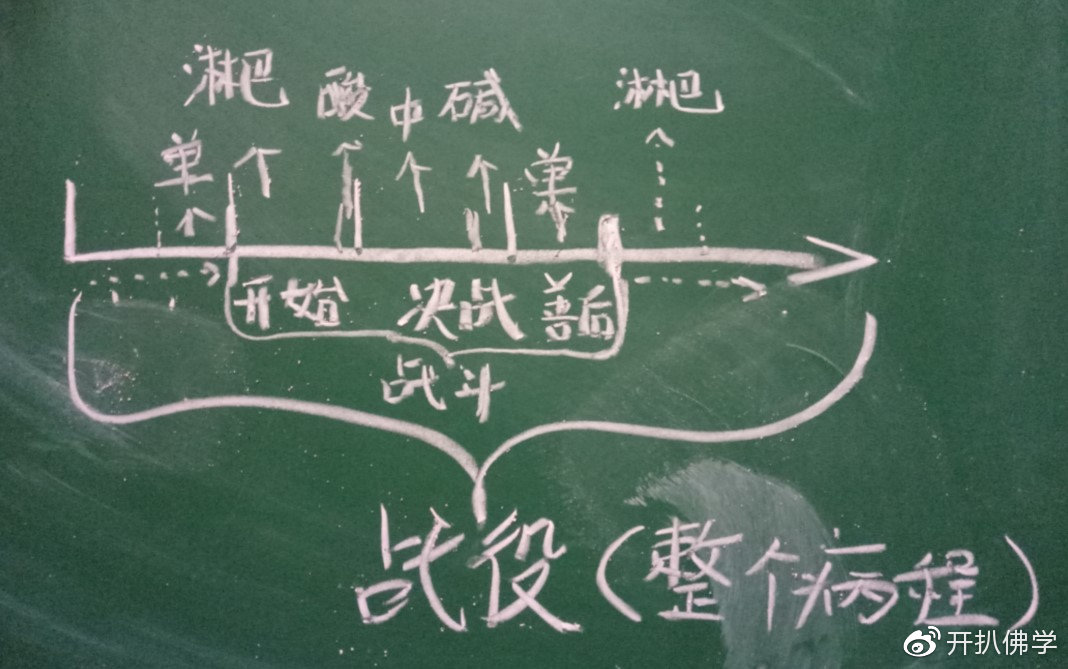 淋巴 酸 中 碱 淋巴
单 单
开始 决战 善后
战斗
战役(整个病程)
开扒佛学